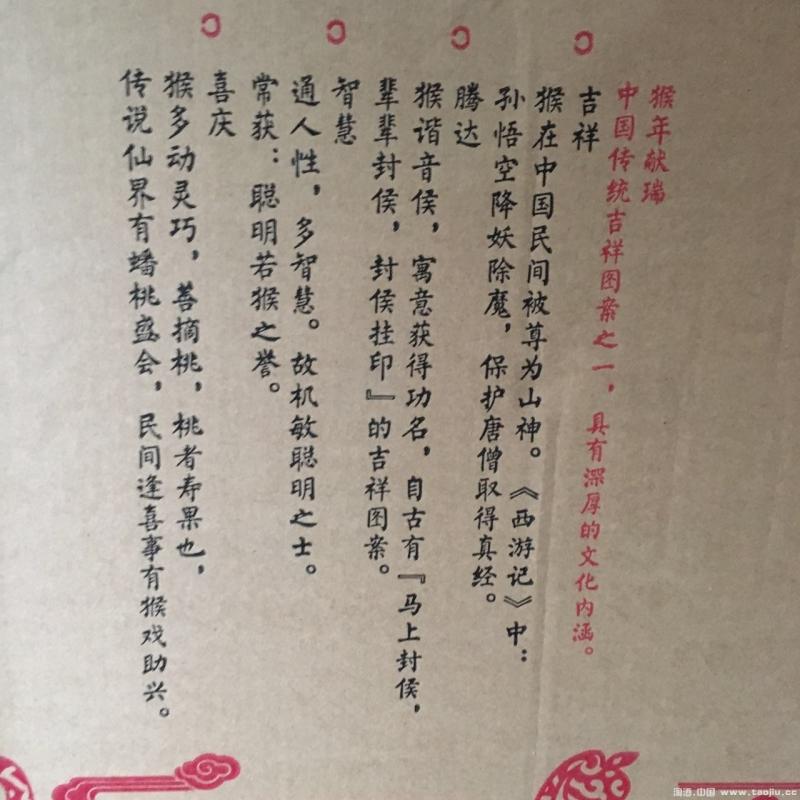 猴年献瑞
中国传统吉祥图案之一，具有深厚的文化内涵。
吉祥
猴在中国民间被尊为山神。《西游记》中：
孙悟空降妖除魔，保护唐僧取得真经。
腾达
猴谐音侯，寓意获得功名，自古有『马上封侯，
辈辈封侯，封侯挂印』的吉祥图案。
智慧
通人性，多智慧。故机敏聪明之士。
常获：聪明若猴之誉。
喜庆
猴多动灵巧，善摘桃，桃者寿果也，
传说仙界有蟠桃盛会，民间逢喜事有猴戏助兴。
淘酒.中国 www.taojiu.cc